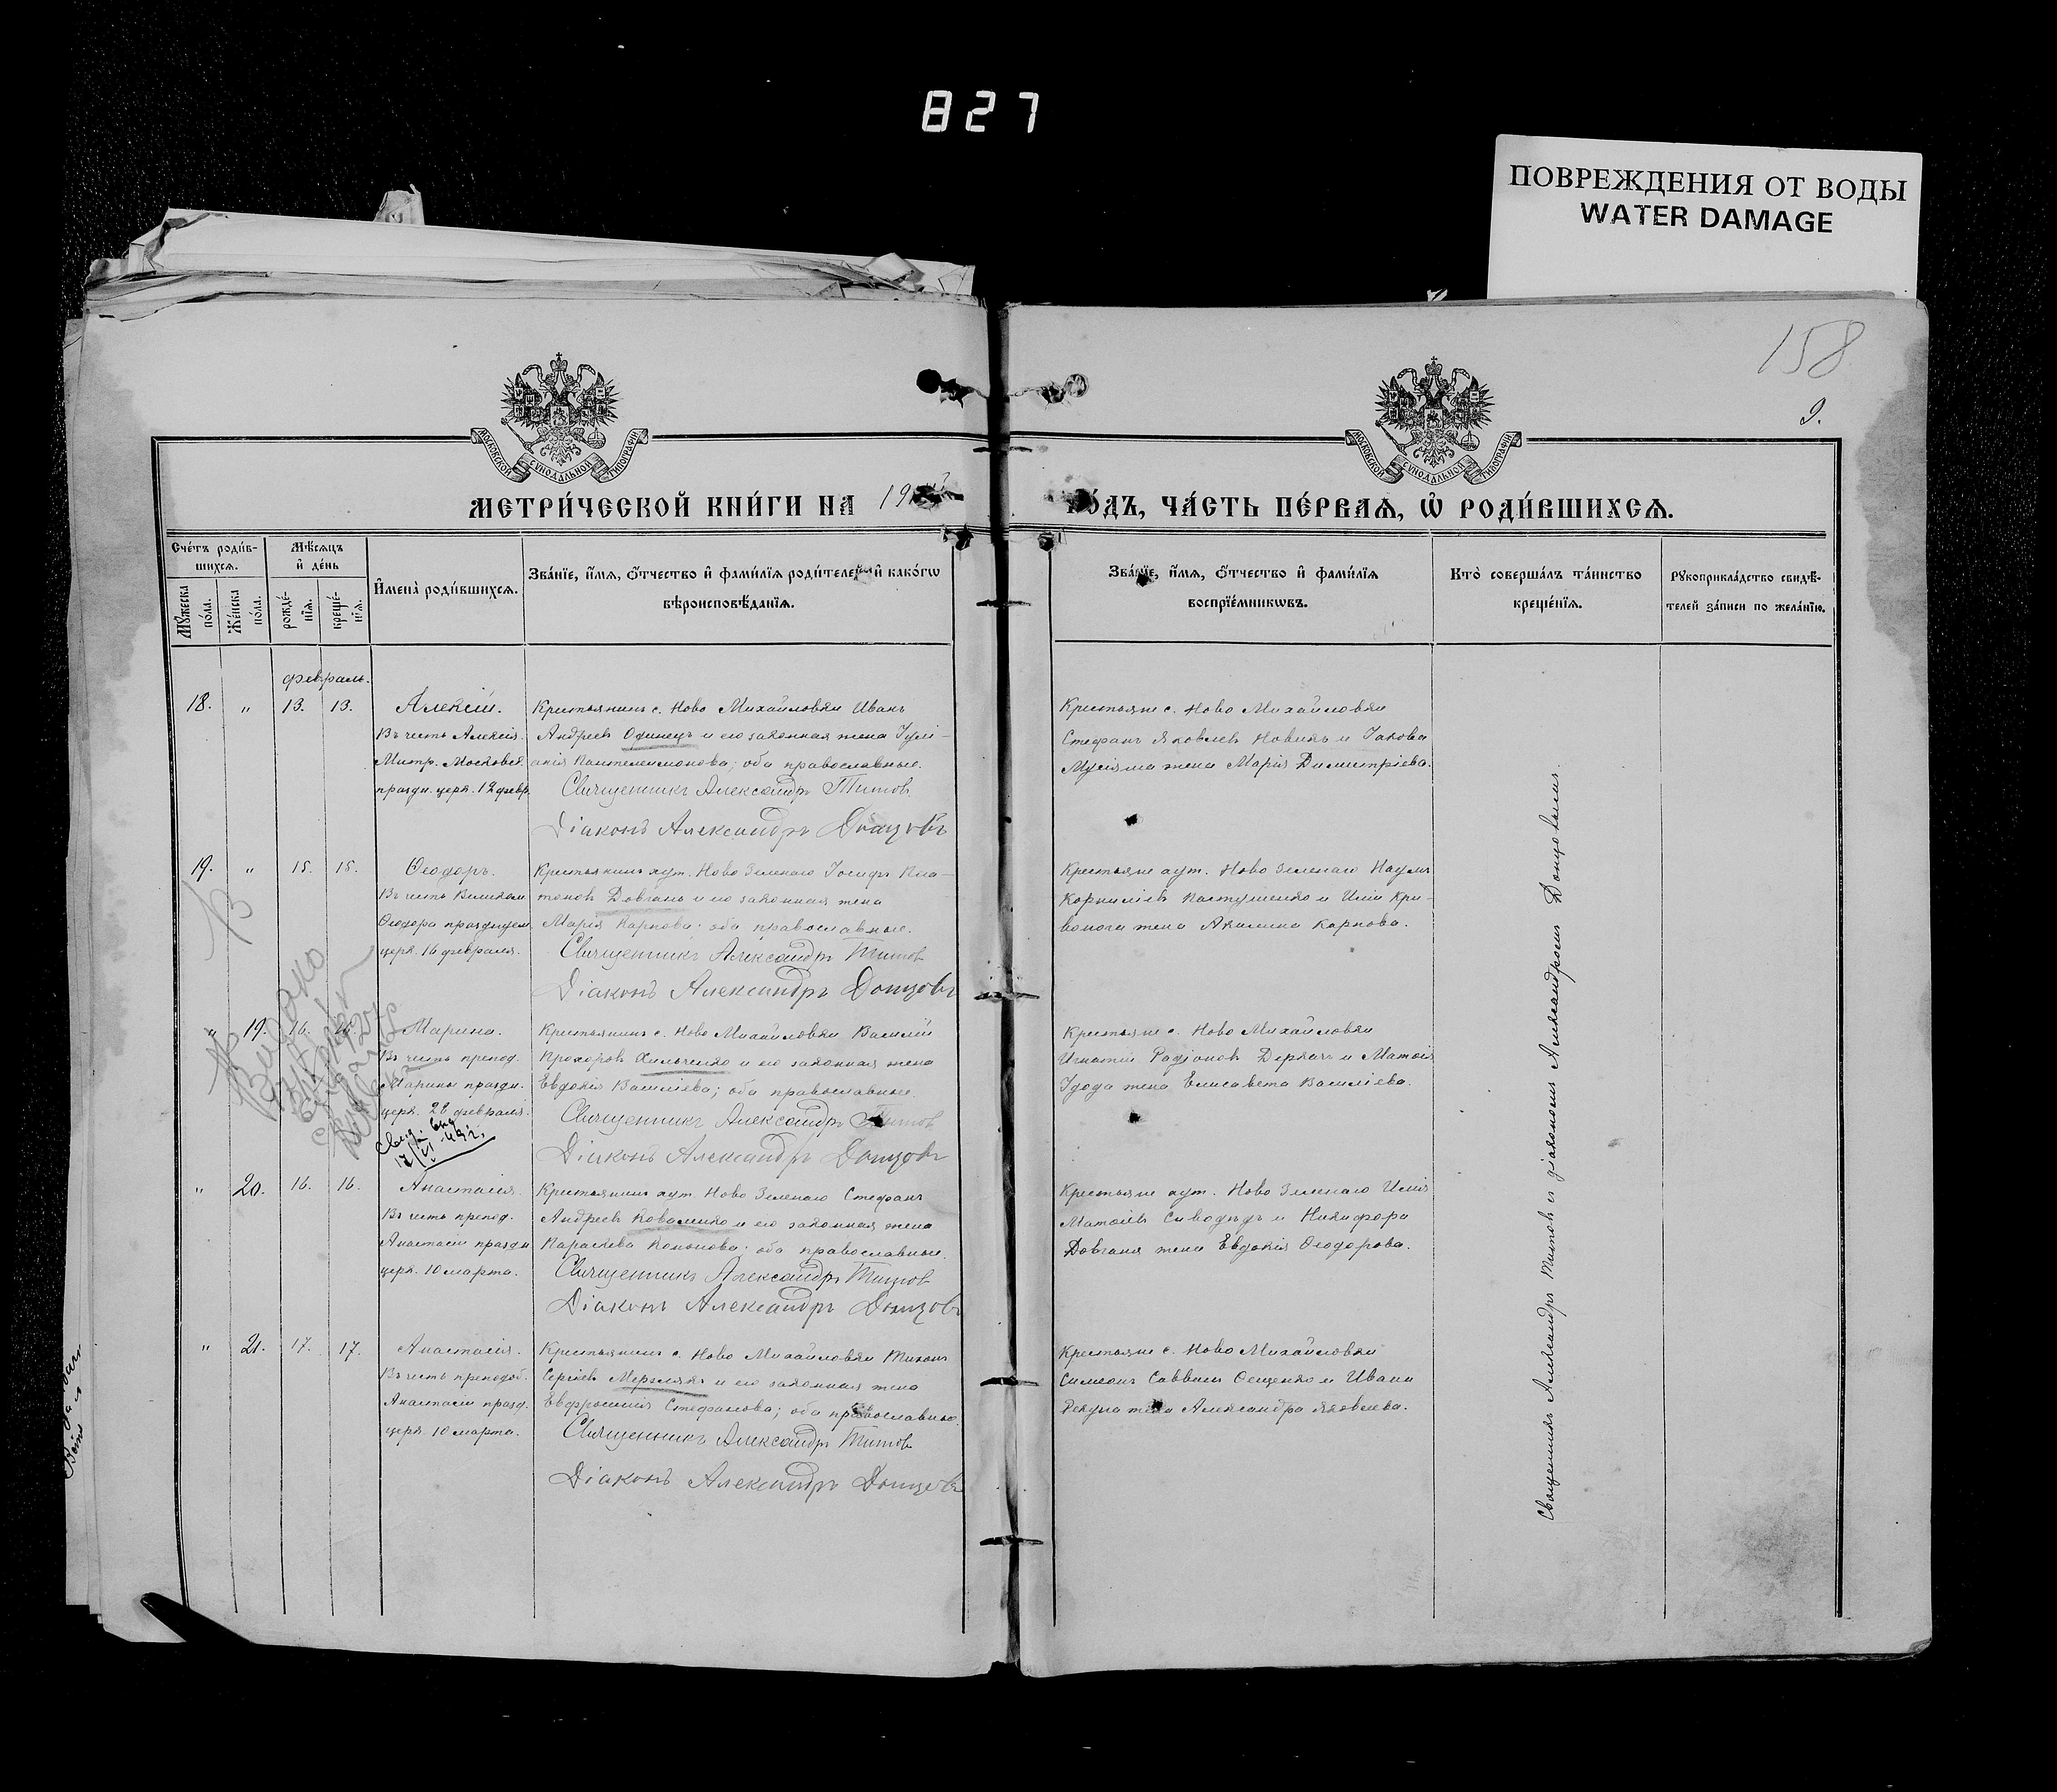 827
ПОВРЕЖДЕНИЯ ОТ ВОДЫ
WATER DAMAGE
158
9.
МОСКОВСКОЙ СѴНОДАЛЬНОЙ ТИПОГРАФІИ
МОСКОВСКОЙ СѴНОДАЛЬНОЙ ТИПОГРАФІИ
МЕТРИ́ЧЕСКОЙ КНИ́ГИ НА 19
ГО́ДЪ, ЧА́СТЬ ПЕ́РВАѦ, Ѡ҆ РОДИ́ВШИХСѦ.
Сче́тъ роди́в-
шихсѧ.
Мꙋ́жеска по́ла.
Же́нска по́ла.
Мѣ́сѧцъ
и҆ де́нь
рожде́-
нїѧ.
креще́-
нїѧ.
И҆мена̀ роди́вшихсѧ.
Зва́нїе, и҆́мѧ, ѻ҆́тчество и҆ фами́лїѧ роди́телей и҆ како́гѡ
вѣроисповѣ́данїѧ.
Зва́нїе, и҆́мѧ, ѻ҆́тчество и҆ фами́лїѧ
воспрїе́мникѡвъ.
Кто̀ соверша́лъ та́инство
креще́нїѧ.
Рꙋкоприкла́дство свидѣ́-
телей за́писи по жела́нїю.
февраль.
18. " 13. 13. Алексій.
Въ честь Алексія.
Митр. Московск.
праздн. церк. 12 февр.
Крестьянинъ с. Ново Михайловки Иванъ
Андреевъ Одинецъ и его законная жена Іулі-
анія Пантелеимонова; оба православные.
Священникъ Александръ Титовъ
Діаконъ Александръ Донцовъ
Крестьяне с. Ново Михайловки
Стефанъ Яковлевъ Новикъ и Іакова
жена Марія Димитріева.
19. " 15. 15. Ѳеодоръ.
Въ честь Великом.
Ѳеодора празднуем.
церк. 16 февраля.
Крестьянинъ хут. Ново Зеленаго Іосифъ Пла-
тоновъ Довгань и его законная жена
Марія Карпова; оба православные.
Священникъ Александръ Титовъ
Діаконъ Александръ Донцовъ
Крестьяне хут. Ново Зеленаго Наумъ
Корниліевъ Пастушенко и Иліи Кри-
вонога жена Акилина Карпова.
" 19. 16. 16. Марина.
Въ честь препод.
Марины праздн.
церк. 28 февраля.
Крестьянинъ с. Ново Михайловки Василій
Прохоровъ Хильченко и его законная жена
Евдокія Василіева; оба православные.
Священникъ Александръ Титовъ
Діаконъ Александръ Донцовъ
Крестьяне с. Ново Михайловки
Игнатій Родіоновъ Деркачъ и Матѳія
Удода жена Елисавета Василіева.
Видано
" 20. 16. 16. Анастасія.
Въ честь препод.
Анастасіи праздн.
церк. 10 марта.
Крестьянинъ хут. Ново Зеленаго Стефанъ
Андреевъ Коваленко и его законная жена
Параскева Кононова; оба православные.
Священникъ Александръ Титовъ
Діаконъ Александръ Донцовъ
Крестьяне хут. Ново Зеленаго Илія
Матѳіевъ Сиводѣдъ и Никифора
Довганя жена Евдокія Ѳеодорова.
" 21. 17. 17. Анастасія.
Въ честь преподоб.
Анастасіи празд.
церк. 10 марта.
Крестьянинъ с. Ново Михайловки Тихонъ
Сергіевъ Мерзлякъ и его законная жена
Евфросинія Стефанова; оба православные.
Священникъ Александръ Титовъ
Діаконъ Александръ Донцовъ
Крестьяне с. Ново Михайловки
Симеонъ Саввинъ Ѳещенко и Ивана
Рекуна жена Александра Яковлева.
Священникъ Александръ Титовъ съ діакономъ Александромъ Донцовымъ.